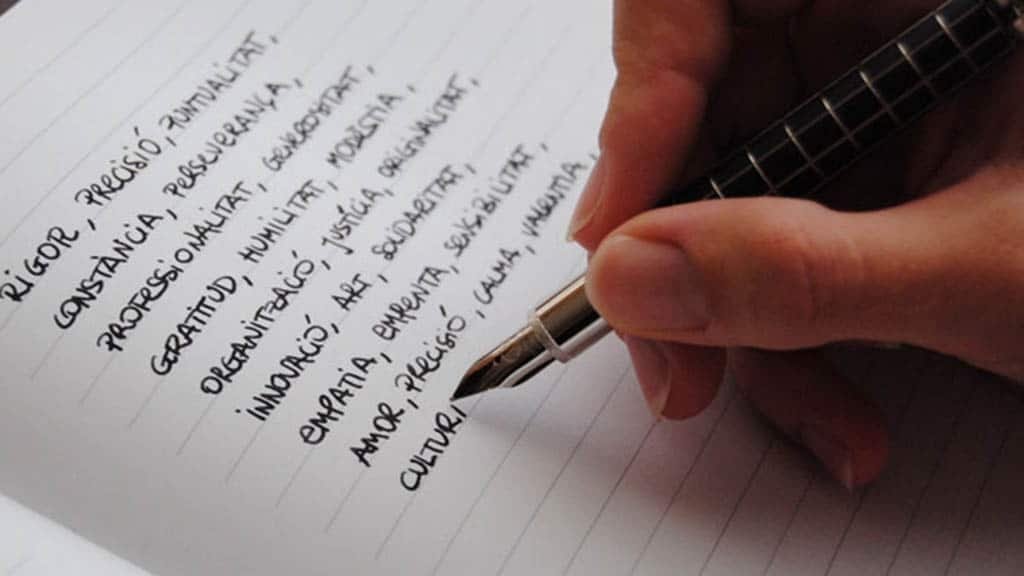 RIGOR, PRECISIÓ, PUNTUALITAT,
CONSTÀNCIA, PERSEVERANÇA,
PROFESSIONALITAT, GENEROSITAT,
GRATITUD, HUMILITAT, MODÈSTIA,
ORGANITZACIÓ, JUSTÍCIA, ORIGINALITAT,
INNOVACIÓ, ART, SOLIDARITAT,
EMPATIA, EMPENTA, SENSIBILITAT,
AMOR, PRECISIÓ, CALMA, VALENTIA,
CULTUR